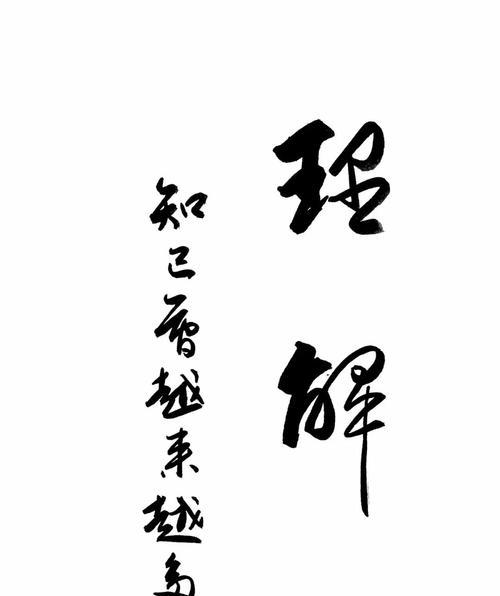 理解
知己會越来越多